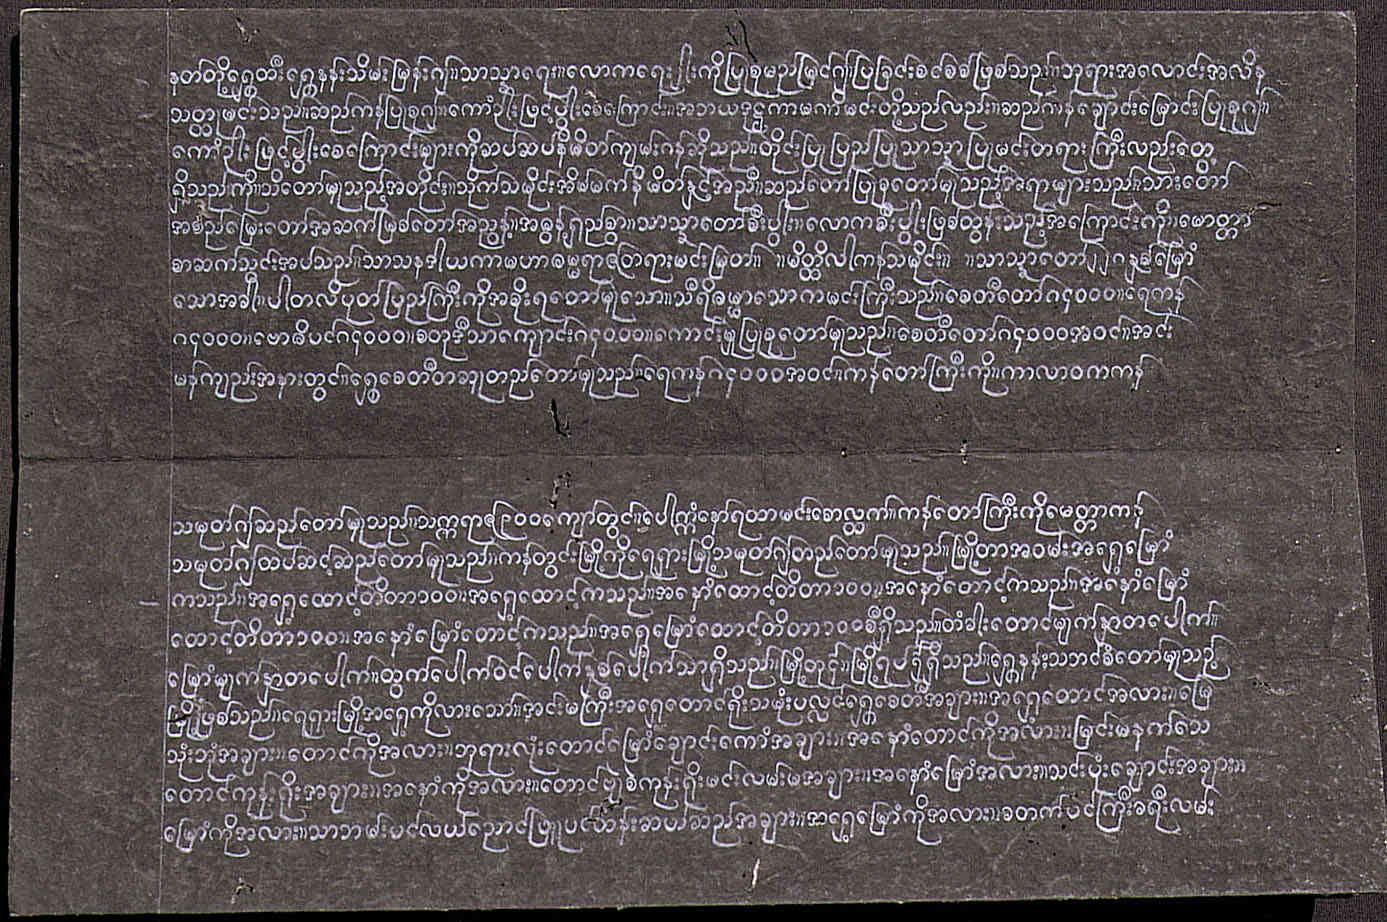 နတ်တို့ရွှေတီးရွှေနန်းသိမ်းမြန်းဂျ်။သာသ္နာရေး။လောကရေး၂ပါးကိုပြုစုမည်မြင်ဂျ်။ပြုခြင်းစင်စစ်ဖြစ်သည်။ဘုရားအလောင်းအလိန
သတ္တုမင်းသည်။ဆည်ကန်ပြုစုဂျ်။ကောံဦးဖြင့်ပွါးစေကြောင်း။အဘယဒုဋ္ဌကာမကာမင်းတို့သည်လည်း။ဆည်ကန်ချောင်းမြောင်းပြုစုဂျ်။
ကောံဦးဖြင့်ပွါးစေကြောင်းများကိုဆပ်ဆပ်နိမိတ်ကျမ်းဂန်ဆိုသည်။တိုင်းပြုပြည်ပြုသာသ္နာပြုမင်းတရားကြီးလည်းတွေ့
ရှိသည်ကို။သိတော်မူသည့်အတိုင်း။သိုက်သမိုင်းအိမ်မက်နိမိတ်နှင့်အညီ။ဆည်တော်ပြုစုတော်မူသည့်အရာများသည်။သားတော်
အစဉ်မြေးတော်အဆက်မြစ်တော်အညွန့်။အဓွန့်ရှည်စွာ။သာသ္နာတော်စီးပွါး။လောကစီးပွါးဖြစ်ထွန်းသည့်အကြောင်းကို။မောတ္တာ
စာဆက်သွင်းအပ်သည်။သာသနဒါယကာမဟာဓမ္မရာဇာတရားမင်းမြတ်။ ။မိတ္ထိလါကန်သမိုင်း။ ။သာသ္နာတော်၂၂၈နှစ်မြောံ
သောအခါ။ပါတလိပုတ်ပြည်ကြီးကိုအစိုးရတော်မူသော။သီရိဓမ္မာသောကမင်းကြီးသည်။စေတီတော်၈၄၀၀၀။ရေကန်
၈၄၀၀၀။ဗောဓိပင်၈၄၀၀၀။စတုဒ္ဒီသာကျောင်း၈၄၀၀၀။ကောင်းမှုပြုစုတော်မူသည်။စေတီတော်၈၄၀၀၀အဝင်။အင်း
မန်ကျည်းအနားတွင်။ရွှေစေတီတဆူတည်တော်မူသည်။ရေကန်၈၄၀၀၀အဝင်။ကန်တော်ကြီးကို။ကာလာဝကကန်
သမုတ်ဂျ်ဆည်တော်မူသည်။သက္ကရာဇ်၉၀၀ကျော်တွင်။ပေါက္ကံနော်ရထာမင်းစောလ္လက်။ကန်တော်ကြီးကိုမေတ္တာကန်
သမုတ်ဂျ်ထပ်ဆင့်ဆည်တော်မူသည်။ကန်တွင်းမြို့ကိုရေရှားမြို့သမုတ်ဂျ်တည်တော်မူသည်။မြို့တာအဝမ်းအရှေ့မြောံ
ကသည်။အရှေ့ထောင့်တိတာ၁၀၀။အရှေ့ထောင့်ကသည်။အနောံထောင့်တိတာ၁၀၀။အနောံတောင့်ကသည်။အနောံမြောံ
ထောင့်တိတာ၁၀၀။အနောံမြောံတောင့်ကသည်။အရှေ့မြောံထောင့်တိတာ၁၀၀စီရှိသည်။တံခါးတောင်မျက်နှာတပေါက်။
မြောံမျက်နှာတပေါက်။ထွက်ပေါက်ဝင်ပေါက်နှစ်ပေါက်သာရှိသည်။မြို့တွင်း။မြို့ရပ်၍ရှိသည်။ရွှေနန်းသဘင်ခံတော်မူသည့်
မြို့ဖြစ်သည်။ရေရှားမြို့အရှေ့ကိုလားသော်။အင်းမကြီးအရှေ့တောင်ရိုးသမုံးပလ္လင်ရွှေစေတီအချား။အရှေ့တောင်အလား။မြေ
သုံးဘုံအချား။တောင်ကိုအလား။ဘုရားလုံးတောင်မြောံချောင်းကောံအချား။အနောံတောင်ကိုအလား။မြင်းမနက်သေ
တောင်ကုန်းရိုးအချား။အနောံကိုအလား။တောင်ဗျူစ်ကုန်းရိုးမင်းလမ်းမအချား။အနောံမြောံအလား။သင်းပုံးချောင်းအချား။
မြောံကိုအလား။သာဘမ်းပင်လယ်ညောင်ဖြူပင်ထန်းဆယ်ဆည်အချား။အရှေ့မြောံကိုအလား။ခတက်ပင်ကြီးခရီးလမ်း